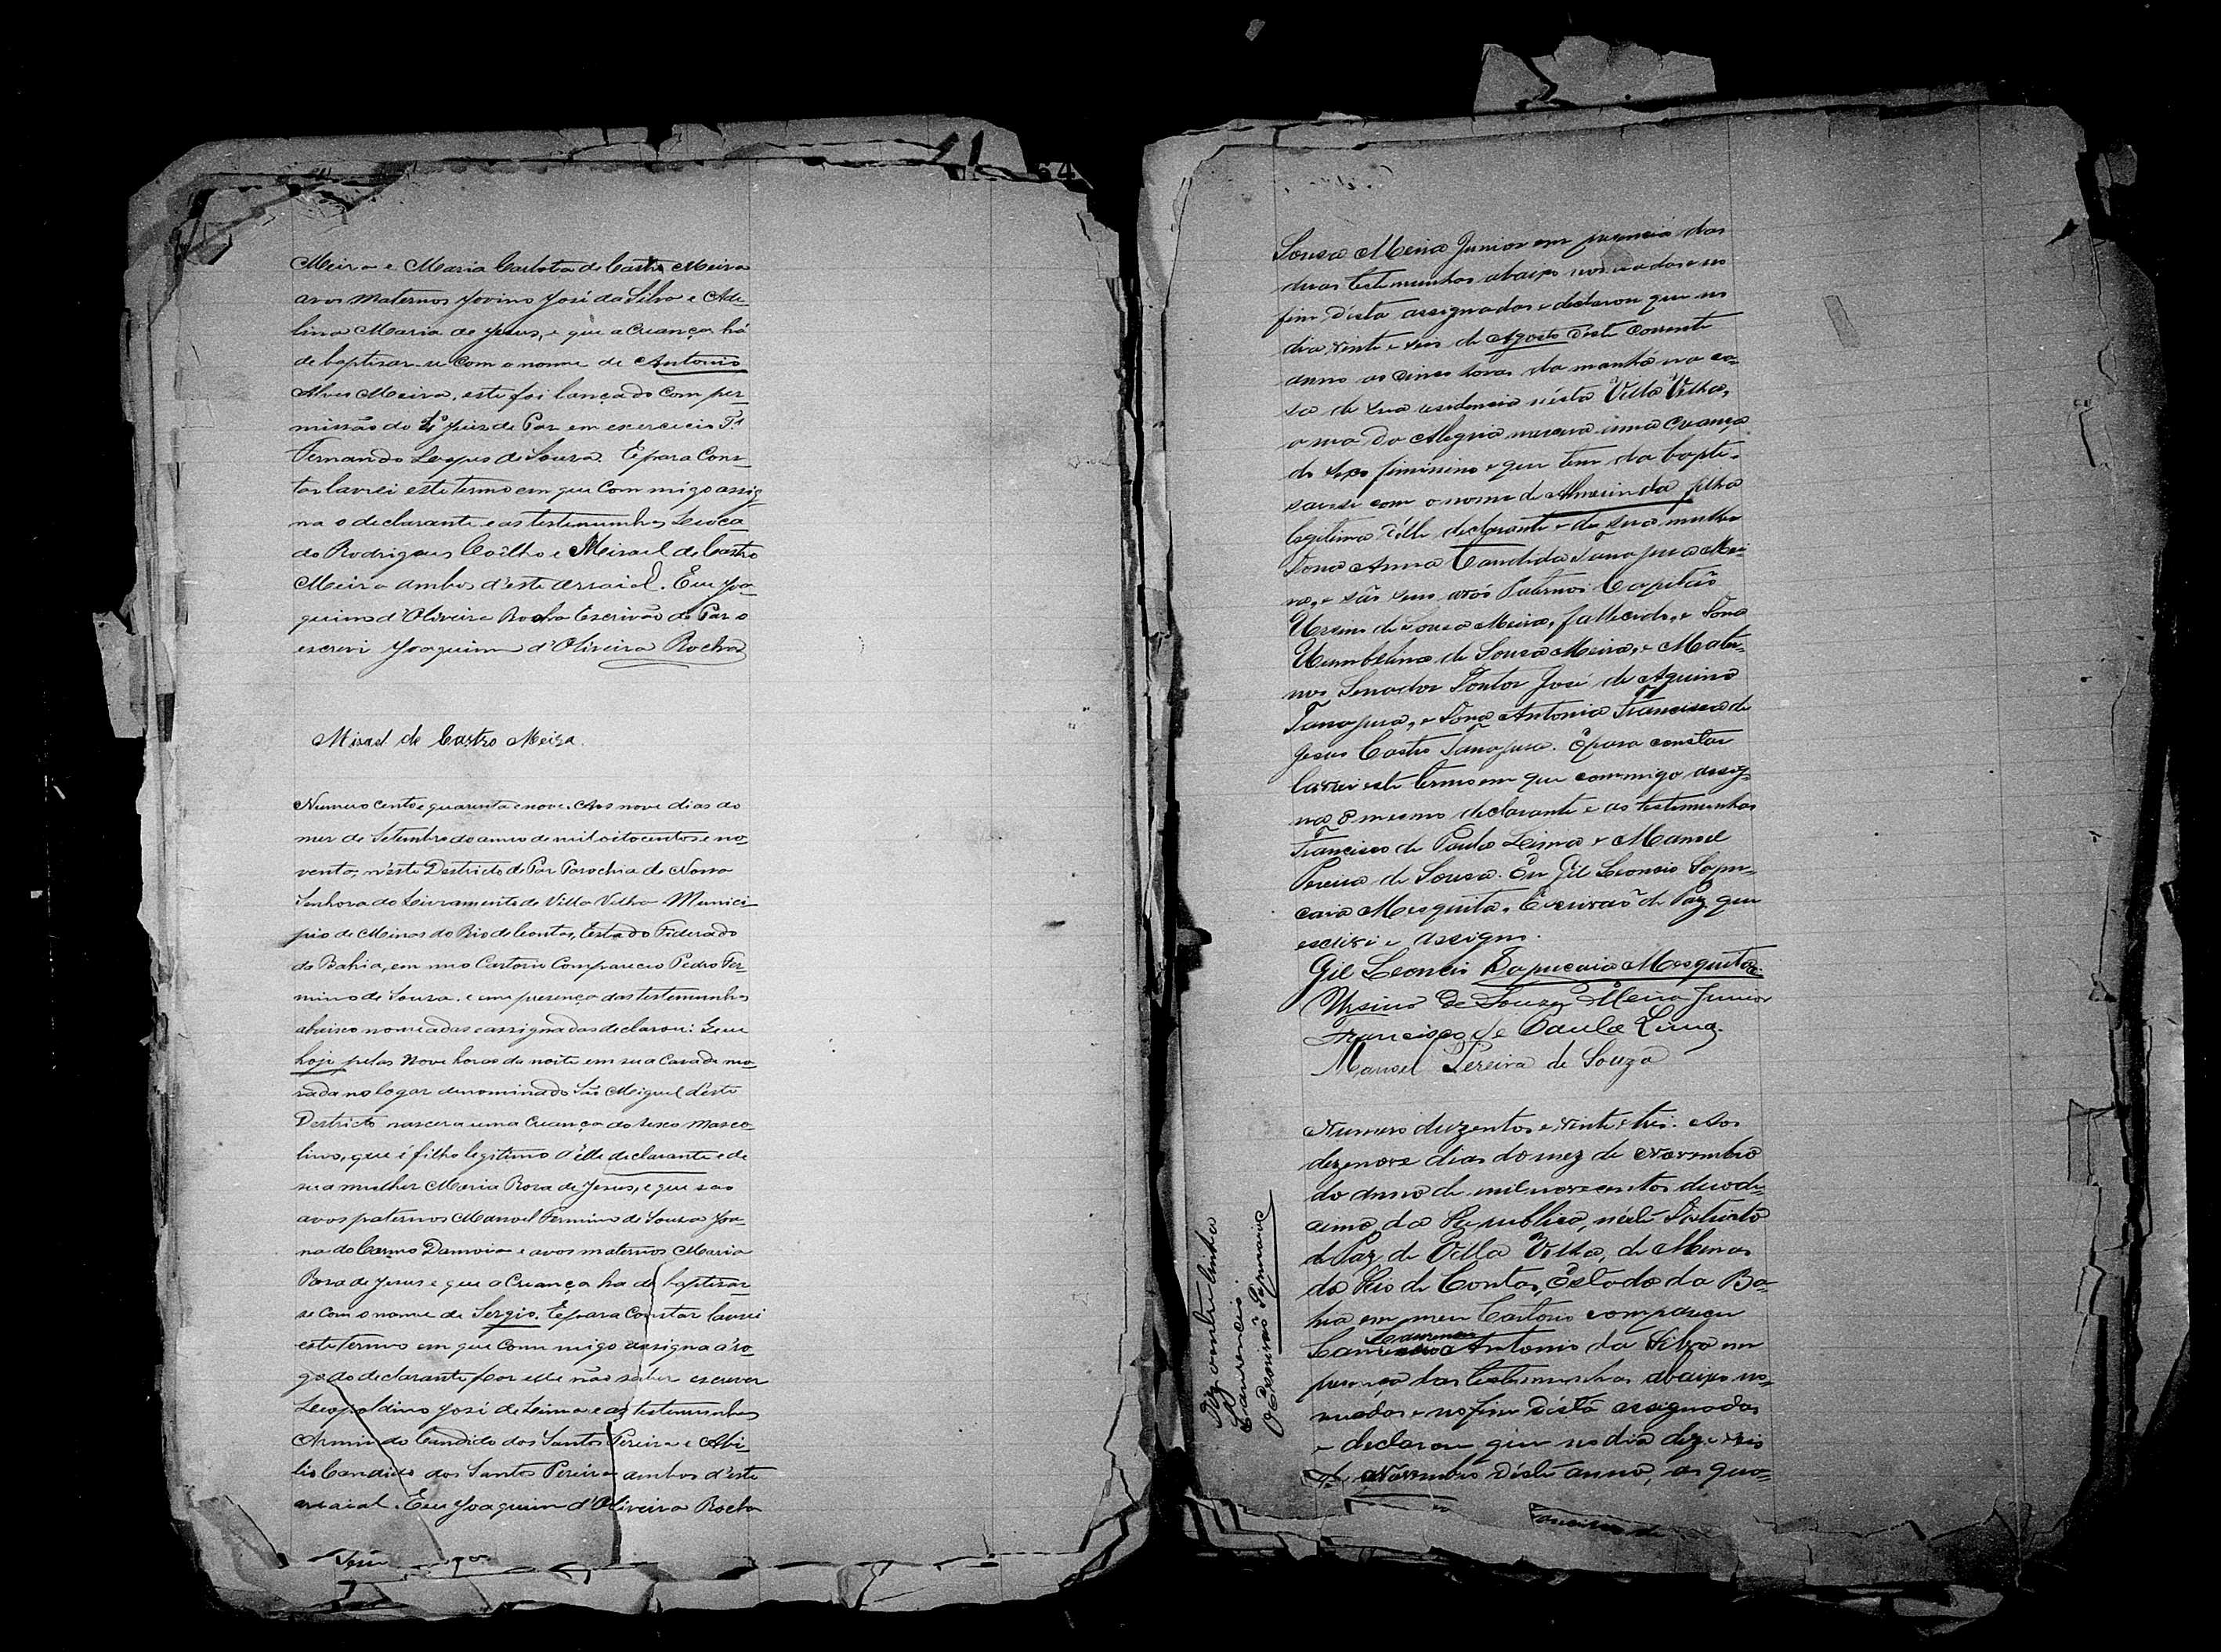 54
Meira e Maria Carlota de Castro Meira
avos maternos Jovino José da Silva e Ade-
lina Maria de Jesus, e que a Criança há
de baptisar-se com o nome de Antonio
Alves Meira, este foi lançado com per-
missão do Juiz de Paz em exercicio
Fernando Lopes de Souza. E para Cons-
tar lavrei este termo em que Commigo assig-
na o declarante e as testemunhas Leoca-
do Rodrigues Coêlho e Misael de Castro
Meira ambos d'este arraial. Eu Joa-
quim d'Oliveira Rocha Escrivão de Paz o
escrevi Joaquim d'Oliveira Rocha
Misael de Castro Meira.
Numero cento e quarenta e nove. Aos nove dias do
mez de Setembro do anno de mil oitocentos e no-
venta, n'este Destricto de Paz Parochia de Nossa
Senhora do Livramento de Villa Velha Munici-
pio de Minas do Rio de Contas, Estado Federado
da Bahia, em meo Cartorio Compareceo Pedro Fer-
mino de Souza. e em presença das testemunhas
abaixo nomeadas e assignadas declarou: Que
hoje pelas Nove horas da noite em sua Casa de mo-
rada no logar denominado São Miguel deste
Destricto nascera uma Criança do sexo mascu-
lino, que é filho legitimo d'elle declarante e de
sua mulher Maria Rosa de Jesus, e que sao
avos paternos Manoel Fermino de Souza Joa-
na do Carmo e avos maternos Maria
Rosa de Jesus e que a Criança ha de baptisar-
se com o nome de Sergio. E para Constar lavrei
este termo em que Commigo assigna á ro-
go do declarante por elle não saber escrever
Leopoldino José de Lima e as testemunhas
Armindo Candido dos Santos Pereira e Abi-
lio Candido dos Santos Pereira ambos d'este
arraial. Eu Joaquim d'Oliveira Rocha
Sousa Meira Junior em presença das
duas testemunhas abaixo nomeadas e no
fim d'esta assignadas e declarou que no
dia vinte e seis de Agosto d'este corrente
anno as cinco horas da manhã na ca-
sa de sua residencia nésta Villa Velha,
a rua da Alegria nascera uma Criança
do sexo feminino e que tem de bapti-
sar-se com o nome de Almerinda filha
legitima d'elle declarante e de sua mulher
Dona Anna Candida Tanajura Mei-
ra, e são seus avós Paternos Capitão
Ursino de Sousa Meira, fallecido, e Dona
Umbelina de Sousa Meira, e Mater-
nos Senador Doutor José de Aquino
Tanajura, e Dona Antonia Francisca de
Jesus Castro Tanajura. E para constar
lavrei este termo em que commigo assig-
na o mesmo declarante e as testemunhas
Francisco de Paula Lima e Manoel
Pereira de Sousa. Eu Gil Leoncio Sapu-
caia Mesquita, Escrivão de Paz que
escrivi e assigno.
Gil Leoncio Sapucaia Mesquita
Ursino de Souza Meira Junior
Francisco de Paula Lima.
Manoel Pereira de Souza
Numero duzentos e vinte e tres. Aos
dezenove dias do mez de Novembro
do anno de mil novecentos duode-
cimo da Republica, néste Districto
de Paz de Villa Velha, de Minas
do Rio de Contas, Estado da Ba-
hia em meu Cartorio compareceu
Laurencio
Antonio da Silva em
presença das testemunhas abaixo no-
meadas e no fim d'esta assignadas
e declarou que no dia dezeseis
de Novembro d'este anno, as qua-
Diz entrelinha
Laurencio.
O Escrivão Sapucaia